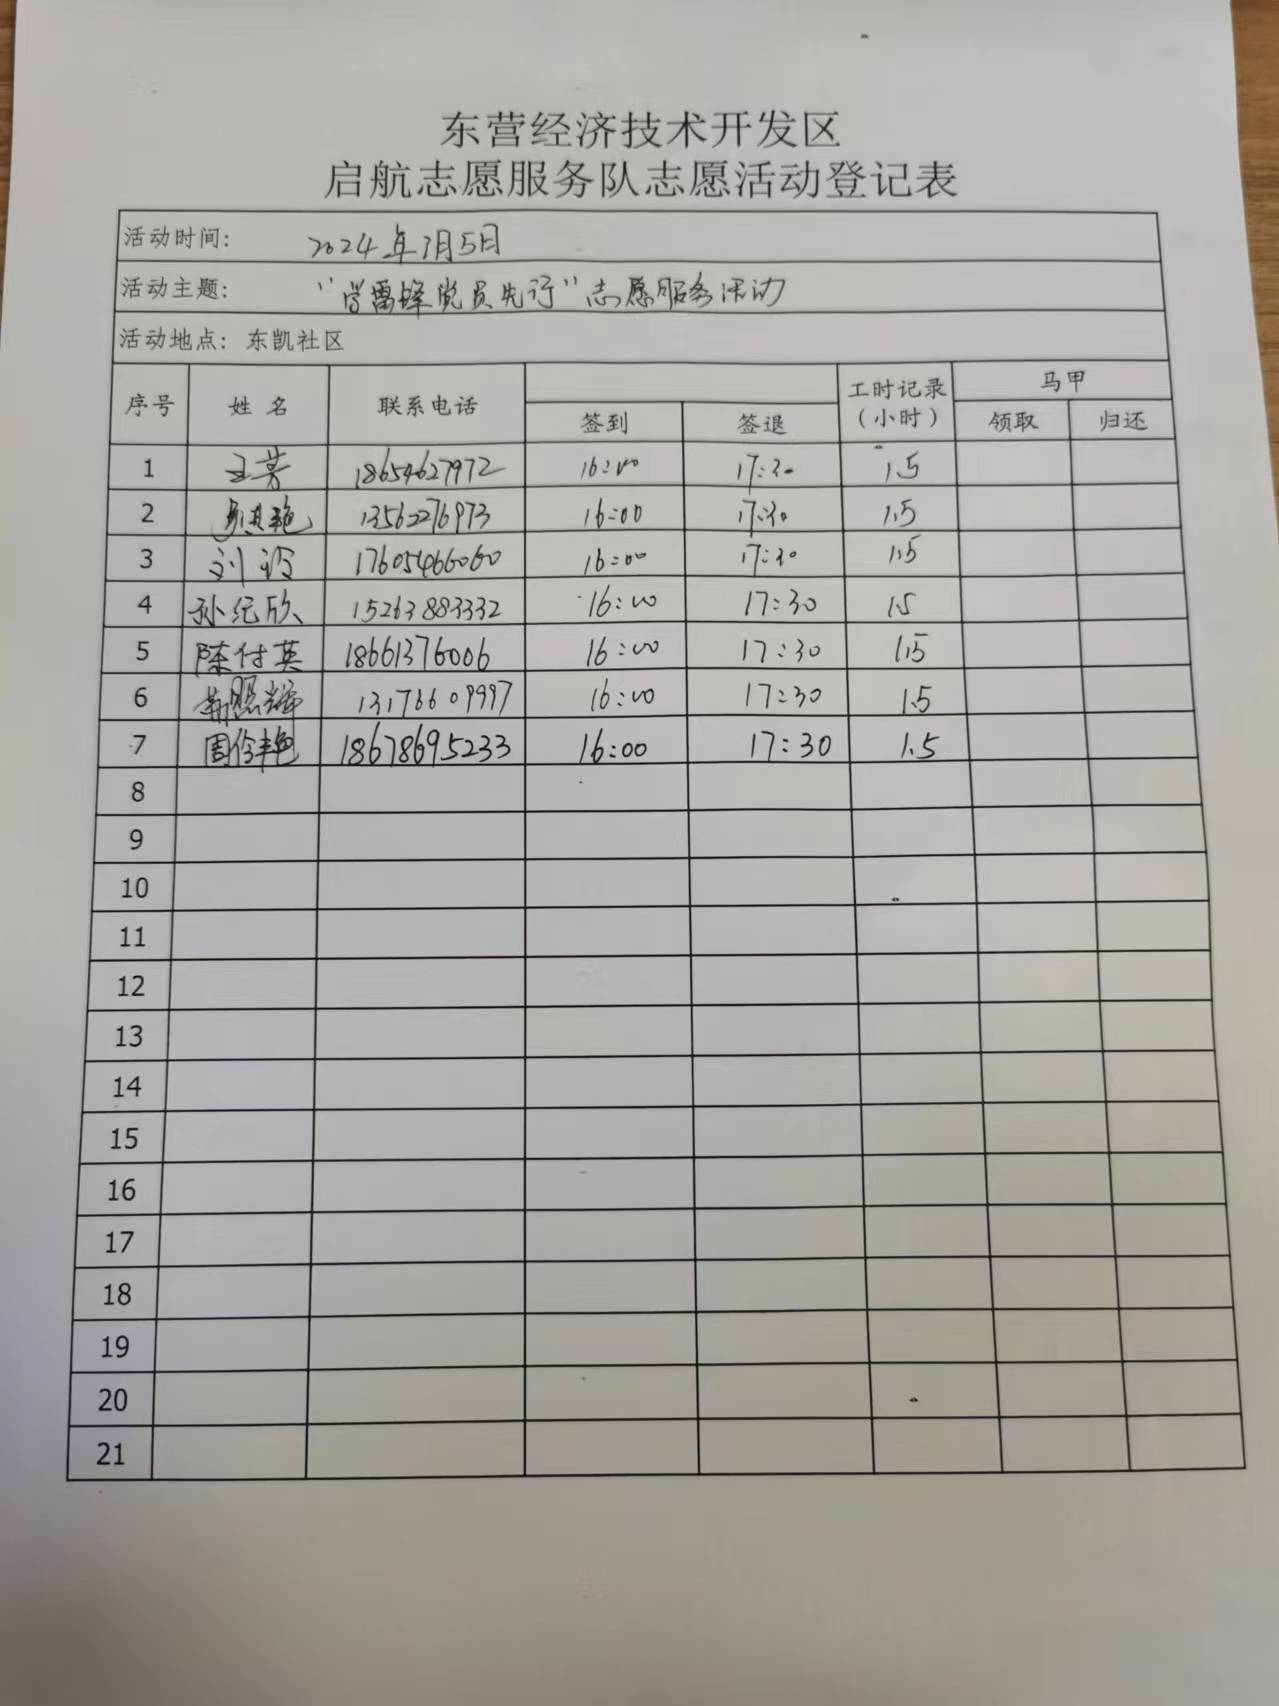 东营经济技术开发区
启航志愿服务队志愿活动登记表
活动时间: 2024年7月5日
活动主题: “学雷锋党员先行”志愿服务活动
活动地点: 东凯社区
序号 姓 名 联系电话 工时记录(小时) 马甲
签到 签退 领取 归还
1 王芳 18654627972 16:00 17:30 1.5
2 13562276973 16:00 17:30 1.5
3 刘玲 17605466060 16:00 17:30 1.5
4 孙纪欣 15263883332 16:00 17:30 1.5
5 陈付英 18661376006 16:00 17:30 1.5
6 靳照辉 13176609997 16:00 17:30 1.5
7 18678695233 16:00 17:30 1.5
8
9
10
11
12
13
14
15
16
17
18
19
20
21